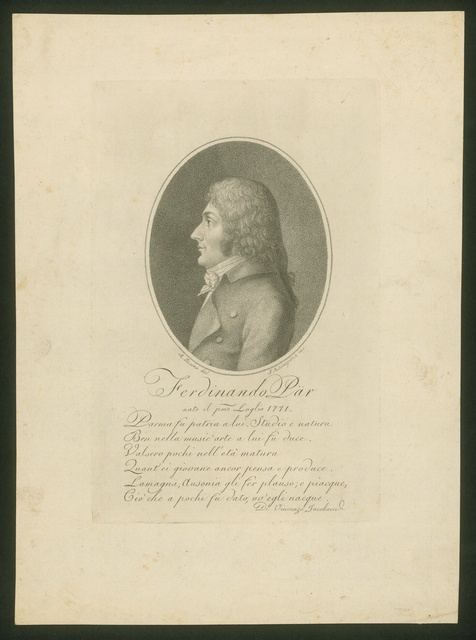 del.
Ferdinando Pär
nato il pmo Luglio 1771.
Parma fù patria a lui; Studio e natura
Ben nella music' arte a lui fù duce.
Valsero pochi nell' età matura
Quant' ei giovane ancor pensa e produce.
Lamagna, Ausonia gli fer plauso; e piacque,
Ciò che a pochi fu dato, ov' egli nacque.
Di Vincenzo Jacobacci